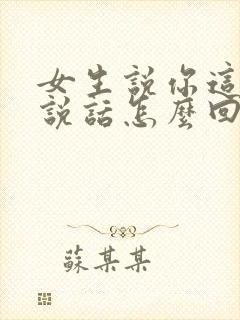 女生説你這
説話怎麼回
蘇某某